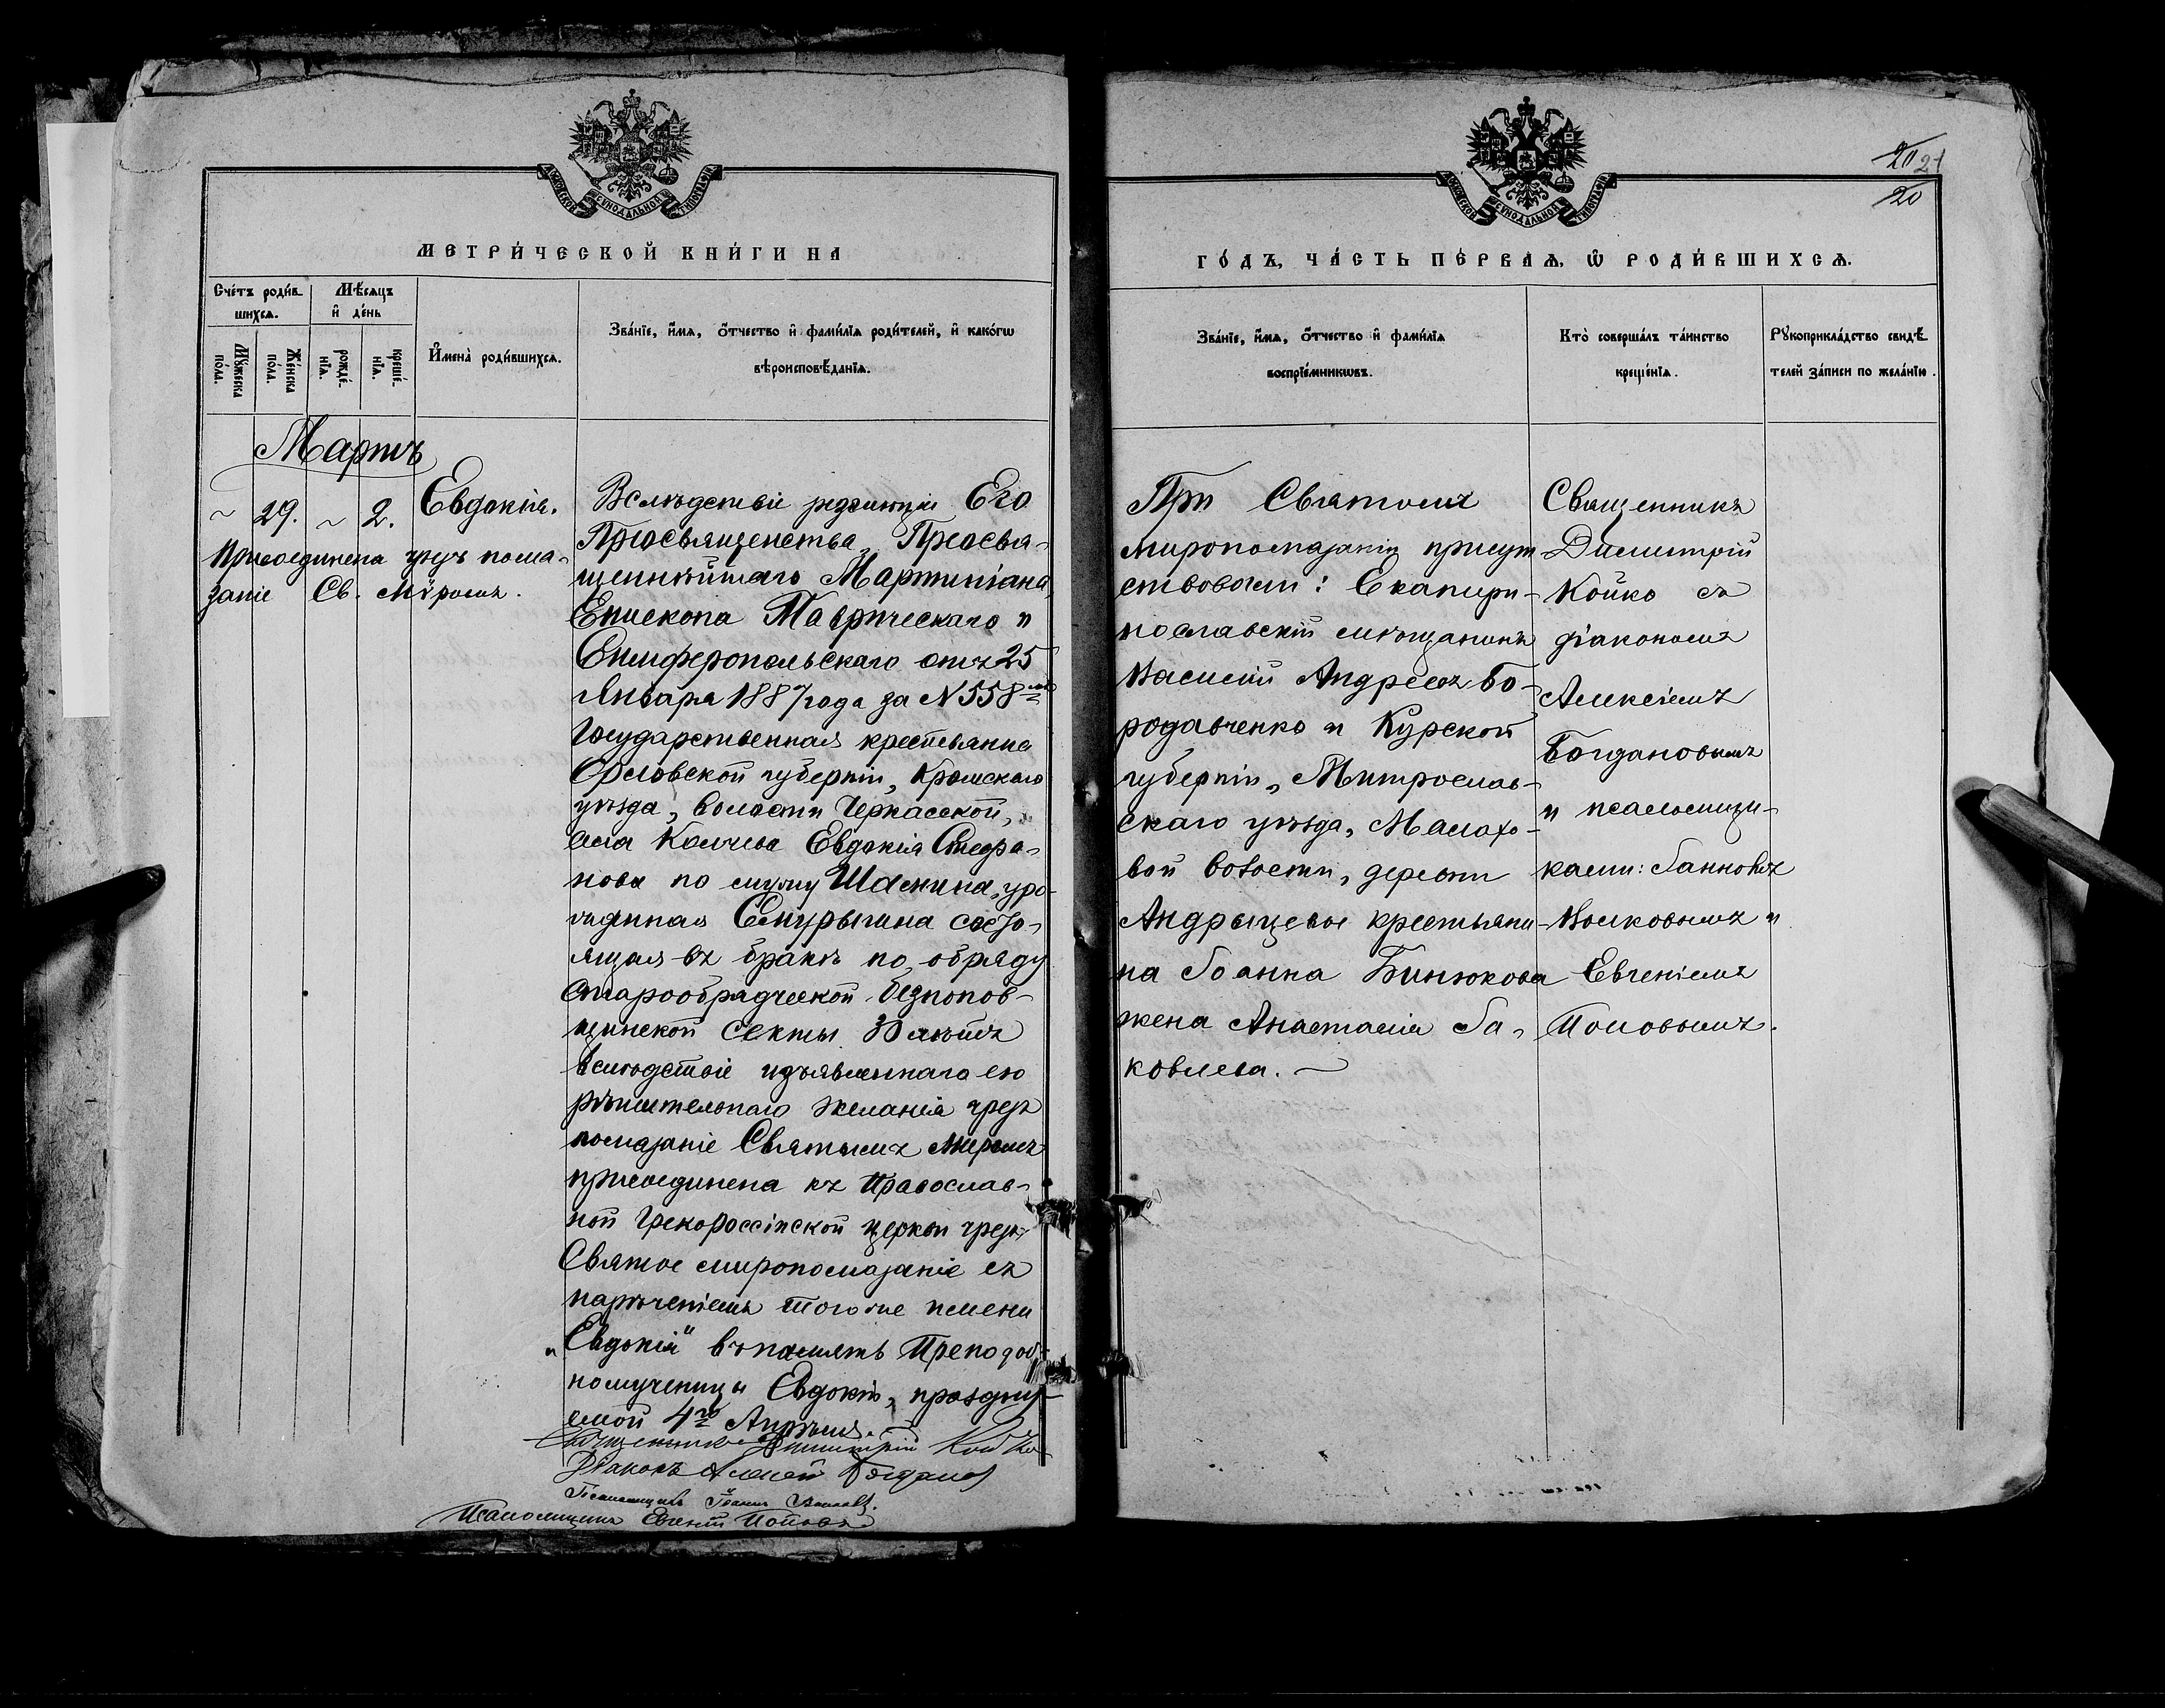 МОСКОВСКОЙ СѴНОДАЛЬНОЙ ТИПОГРАФІИ
МЕТРИ́ЧЕСКОЙ КНИ́ГИ НА
Сче́тъ роди́в-
шихсѧ.
Мѣ́сѧцъ
и҆ де́нь
Мꙋ́жеска
по́ла.
Же́нска
по́ла.
рожде́-
нїѧ.
креще́-
нїѧ.
И҆мена̀ роди́вшихсѧ.
Зва́нїе, и҆́мѧ, ѻ҆́тчество и҆ фами́лїѧ роди́телей, и҆ како́гѡ
вѣроисповѣ́данїѧ.
Мартъ
~ 29. ~ 2. Евдокія.
Присоединена чрезъ пома-
заніе Св. Мѵромъ.
Вслѣдствіе резолюціи Его
Преосвященства, Преосвя-
щеннѣйшаго Мартиніана
Епископа Таврическаго и
Симферопольскаго отъ 25
Января 1887 года за N 558
Государственная крестьянка
Орловской губерніи, Кромскаго
уѣзда, волости Черкасской,
села Колчева Евдокія Стефа-
нова по мужу Шаенина, уро-
жденная Смурыгина состо-
ящая въ бракѣ по обряду
старообрядческой безпопов-
щинской секты 30 лѣтъ
вслѣдствіе изъявленнаго ею
рѣшительнаго желанія чрезъ
помазаніе Святымъ Мѵромъ
присоединена къ Православ-
ной Грекороссійской церкви чрезъ
Святое миропомазаніе съ
нареченіемъ тогоже имени
„Евдокія" въ память Преподоб-
номученицы Евдокіи, празднуе-
емой 4го Апрѣля.
Священникъ Димитрій Койко
Діаконъ Алексѣй Богданов
Псаломщикъ Іоаннъ Волков.
Псаломщикъ Евгеній Поповъ
20 21
20
МОСКОВСКОЙ СѴНОДАЛЬНОЙ ТИПОГРАФІИ
ГО́ДЪ, ЧА́СТЬ ПЕ́РВАѦ, Ѡ҆ РОДИ́ВШИХСѦ.
Зва́нїе, и҆́мѧ, ѻ҆́тчество и҆ фами́лїѧ
воспрїе́мникѡвъ.
Кто̀ соверша́лъ та́инство
креще́нїѧ.
Рꙋкоприкла́дство свидѣ́-
телей за́писи по жела́нїю.
При Святомъ
миропомазаніи присут-
ствовали: Екатери-
нославскій мѣщанинъ
Василій Андреевъ Бо-
родавченко и Курской
губерніи, Митрослав-
скаго уѣзда, Малахо-
вой волости, деревни
Андрыцевое крестьяни-
на Іоанна Бинюкова
жена Анастасія Іа-
ковлева.
Священникъ
Димитрій
Койко съ
діакономъ
Алексіемъ
Богдановымъ
и псаломщи-
ками: Іанномъ
Волковымъ и
Евгеніемъ
Поповымъ.